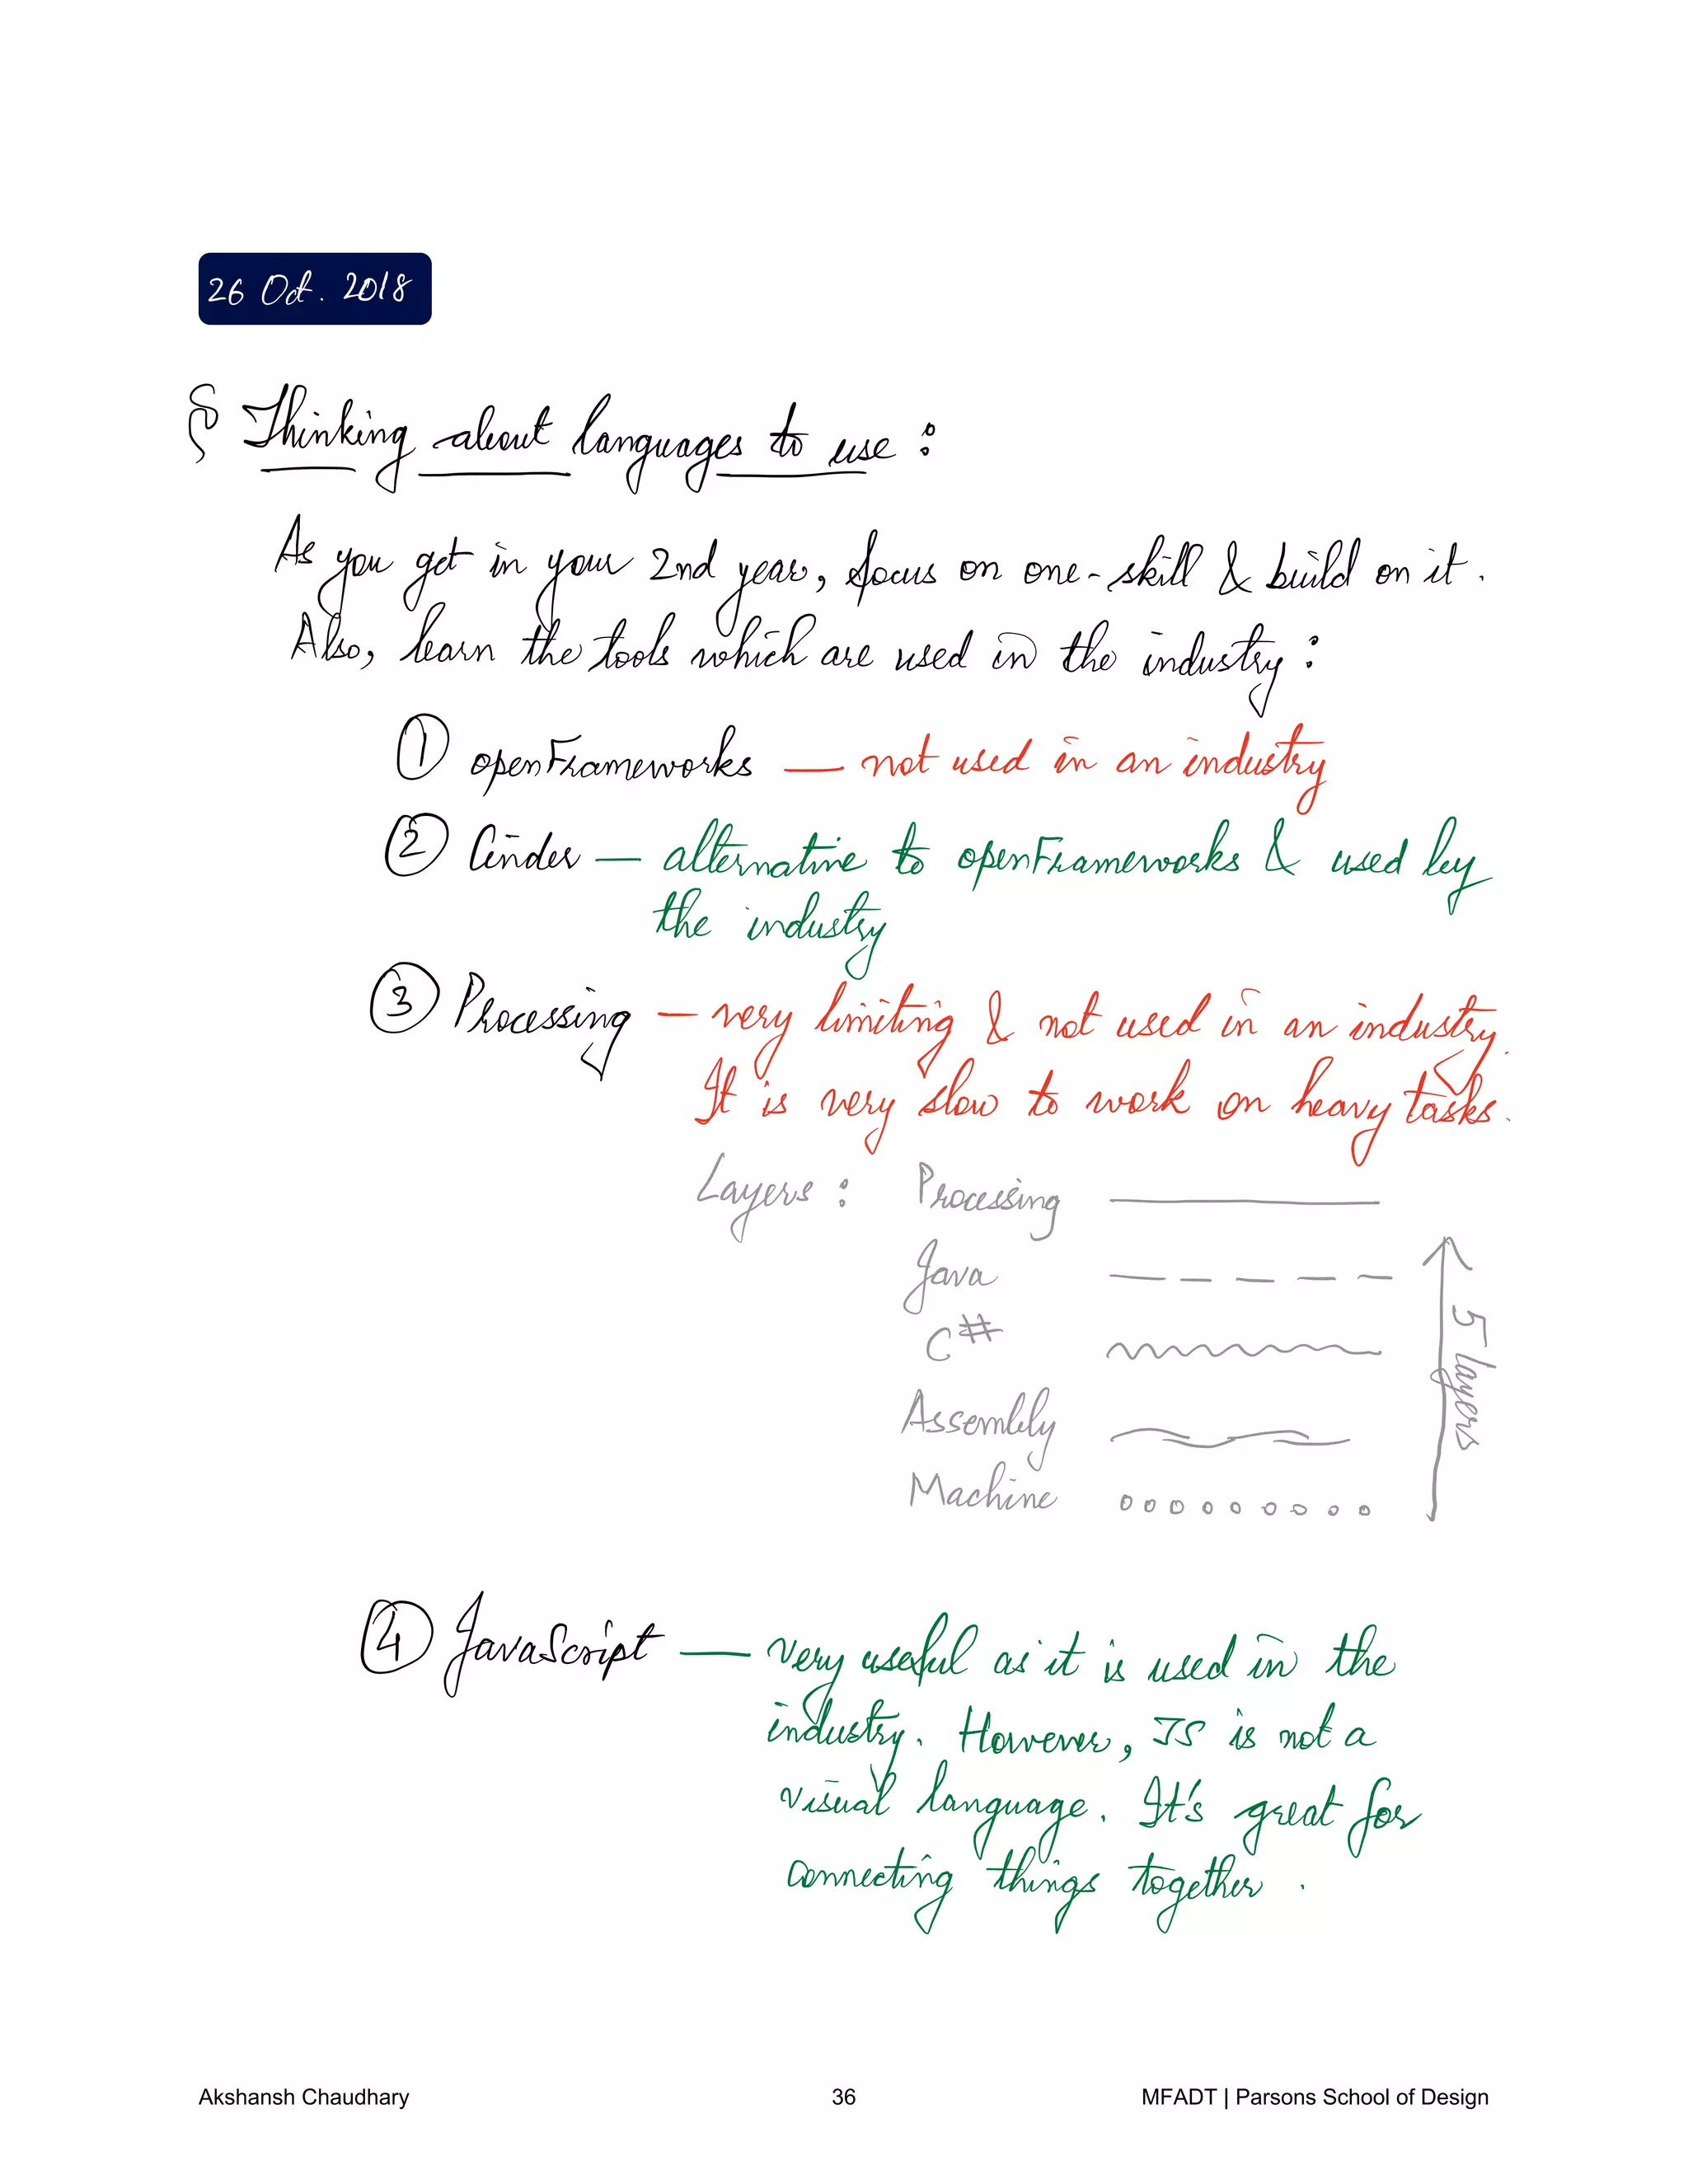 26 Oct. 2018
§ Thinking about languages to use :
As you get in your 2nd year, focus on one-skill & build on it.
Also, learn the tools which are used in the industry :
① openFrameworks — not used in an industry
② Cinder — alternative to openFrameworks & used by
the industry
③ Processing — very limiting & not used in an industry.
It is very slow to work on heavy tasks.
Layers : Processing
Java
C#
Assembly
Machine
5 layers
④ JavaScript — very useful as it is used in the
industry. However, JS is not a
visual language. It's great for
connecting things together.
Akshansh Chaudhary 36 MFADT | Parsons School of Design